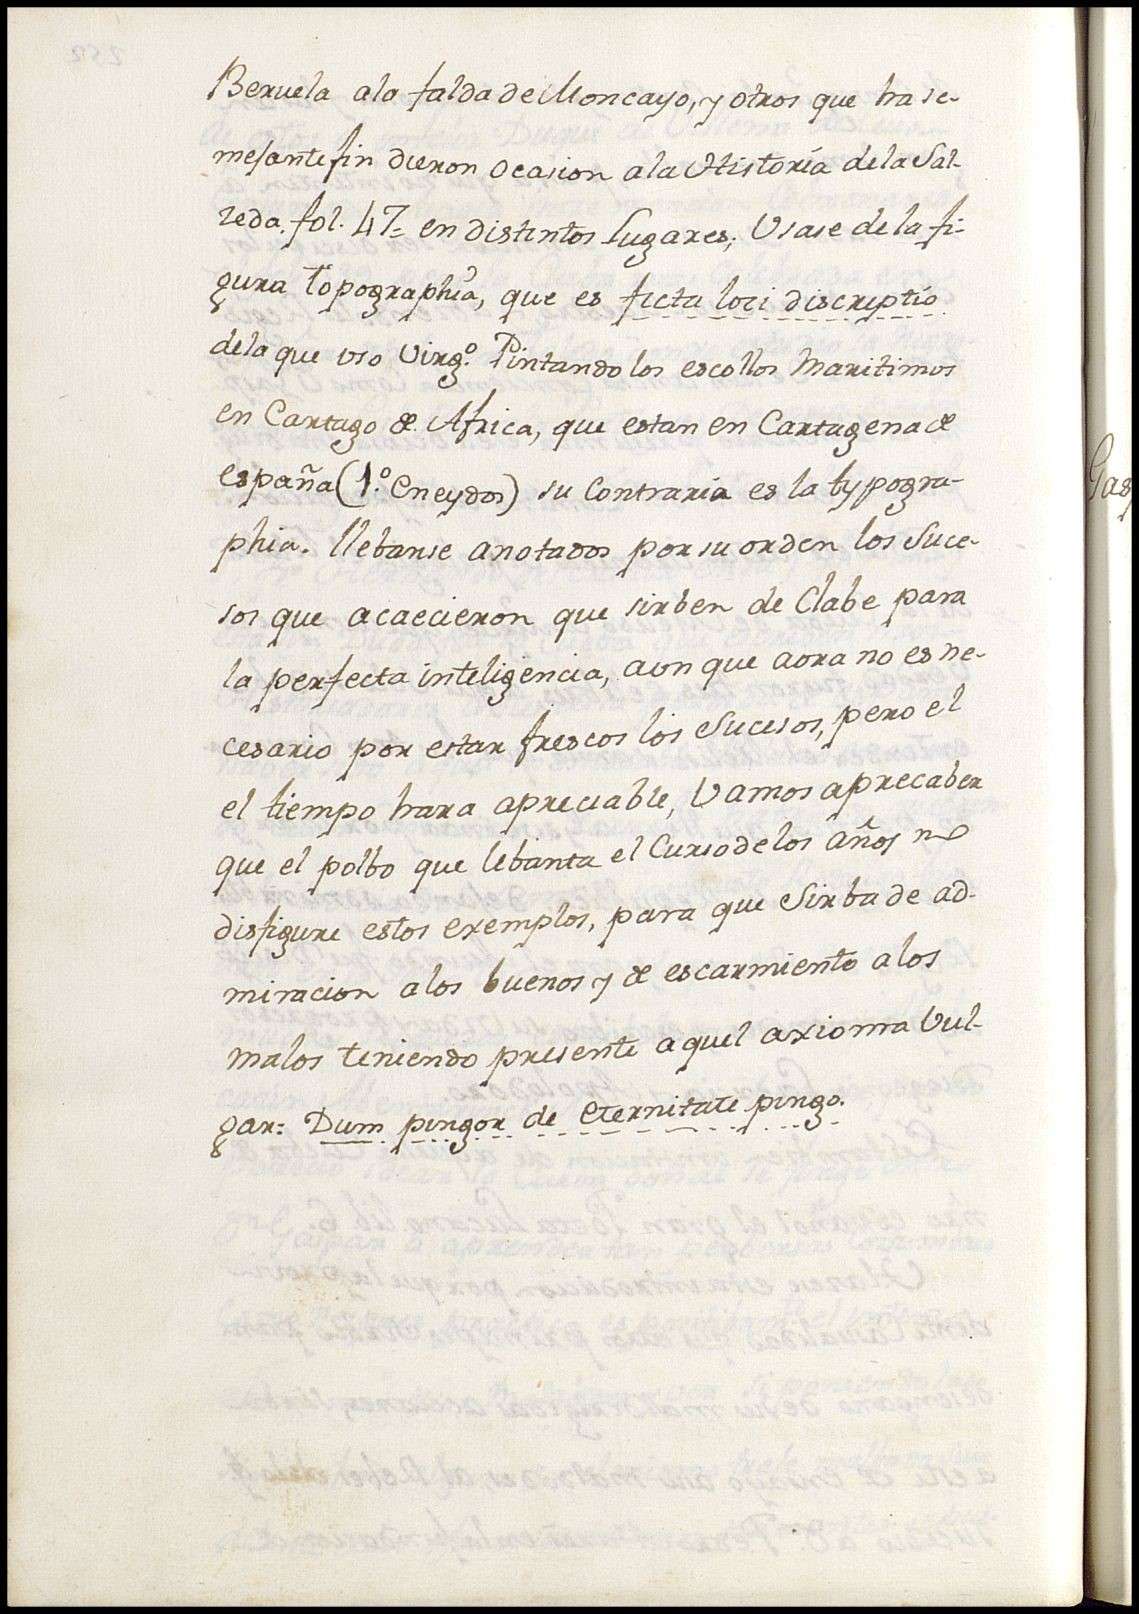 Beruela ala falda de Moncayo, y otros que ha se-
mejante fin dieron ocasion ala Historia dela Sal-
zeda. fol. 47= en distintos Lugares; Usase de la fi-
gura topographia, que es ficta loci discriptio
dela que uso Virg.º Pintando los escollos Maritimos
en Cartago de Africa, que estan en Cartagena de
españa (1.º Eneydos) su Contraria es la typogra-
phia. llebanse anotados por su orden los Suce-
sos que acaecieron que sirben de Clabe para
la perfecta inteligencia, aun que aora no es ne-
cesario por estar frescos los Sucesos, pero el
el tiempo hara apreciable, Vamos aprecaber
que el polbo que lebanta el Curso de los años no
disfigure estos exemplos, para que Sirba de ad-
miracion a los buenos y de escarmiento a los
malos teniendo presente aquel axioma Vul-
gar: Dum pingor de eternitate pingo.
Gas
252